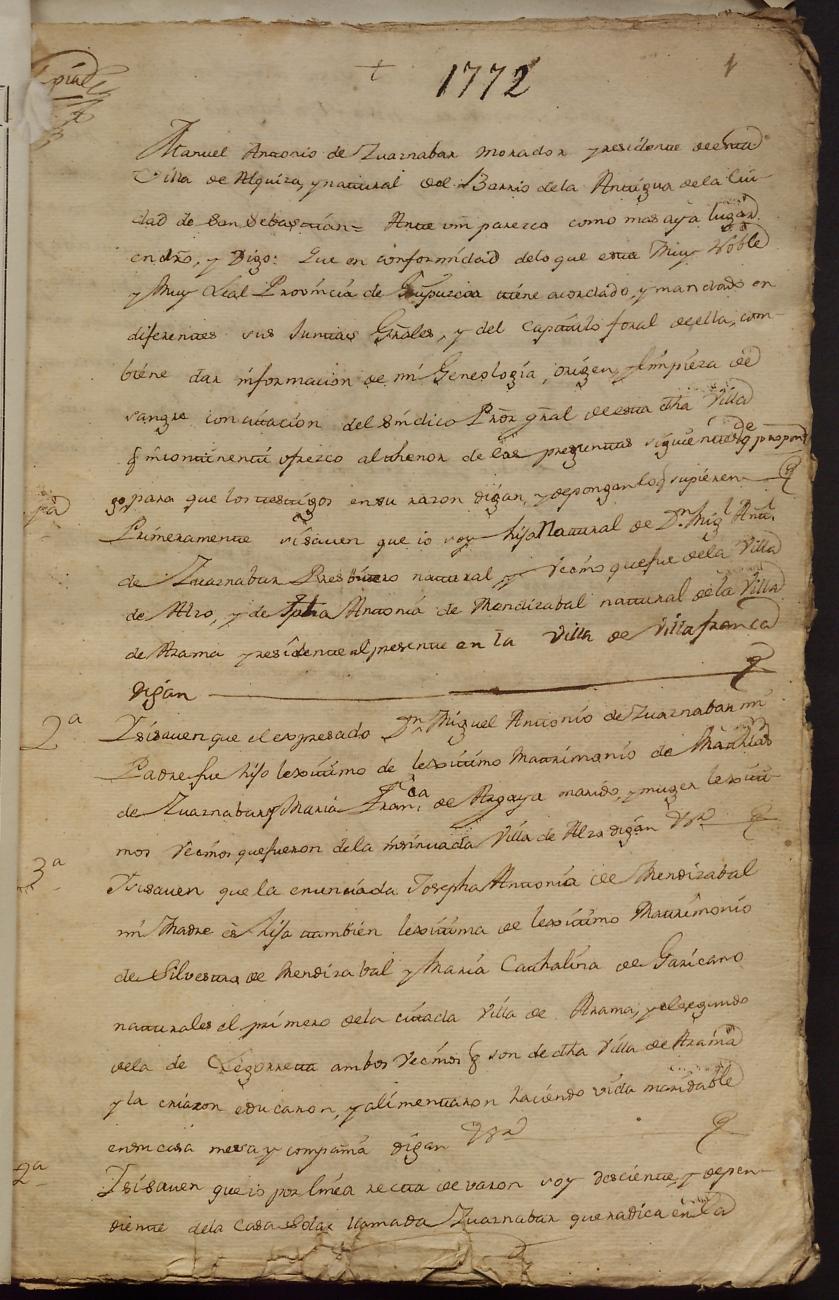 + 1772 1
Manuel Antonio de Zuaznabar morador y residente de esta
Villa de Alquiza, y natural del Barrio dela Antigua dela Ciu-
dad de San Sebastián = Ante vm parezco como mas aya lugar
en dro, y Digo: Que en conformidad delo que esta Muy Noble
y Muy Leal Provincia de Guipuzcoa tiene acordado, y mandado en
diferentes sus Juntas Grales, y del Capitulo foral de ella, com-
biene dar informacion de mi Geneología, origen, y limpieza de
sangre con citacion del Sindico Pror gral de esta dha Villa
q incontinenti ofrezco al thenor de las preguntas siguientes q propon
go para que los testigos en su razon digan, y depongan lo q supieren
Primeramente si sauen que io soy hijo Natural de Dn Migl Antto
de Zuaznabar Presbitero natural, y Vecino que fue dela Villa
de Alzo, y de Josepha Antonia de Mendizabal natural de la Villa
de Arama y residente al presente en la Villa de Villafranca
digan
2a Y si sauen que el expresado Dn Miguel Antonio de Zuaznabar mi
Padre fue hijo lexitimo de lexitimo Matrimonio de
de Zuaznabar y Maria Franca de Argaya marido, y muger lexiti-
mos Vecinos que fueron dela insinuada Villa de Alzo digan
3a Y si sauen que la enunciada Josepha Antonia de Mendizabal
mi Madre es hija tambien lexitima de lexitimo Matrimonio
de Silvestre de Mendizabal y María Cathalina de Garicano
naturales el primero dela citada Villa de Arama, y el segundo
dela de Legorreta ambos Vecinos q son de dha Villa de Arama
y la criaron educaron, y alimentaron haciendo vida maridable
en su casa mesa y compañia digan
Y si sauen que io por linea recta de varon soy desciente, y depen-
diente dela Casa Solar llamada Zuaznabar que radica en la